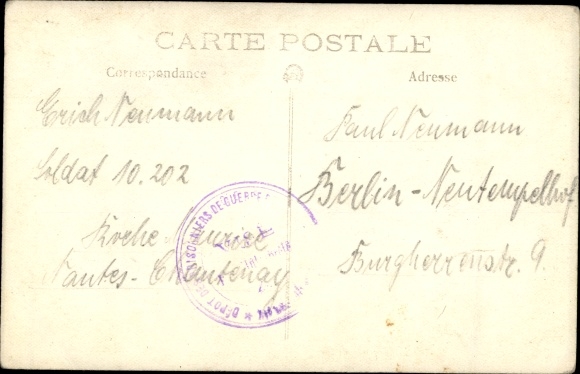 CARTE POSTALE
Correspondance
Adresse
Erich Neumann
Soldat 10.202
Roche Maurice
Nantes-Chantenay
Paul Neumann
Berlin-Neutempelhof
Burgherrenstr. 9.
DÉPOT DE PRISONNIERS DE GUERRE